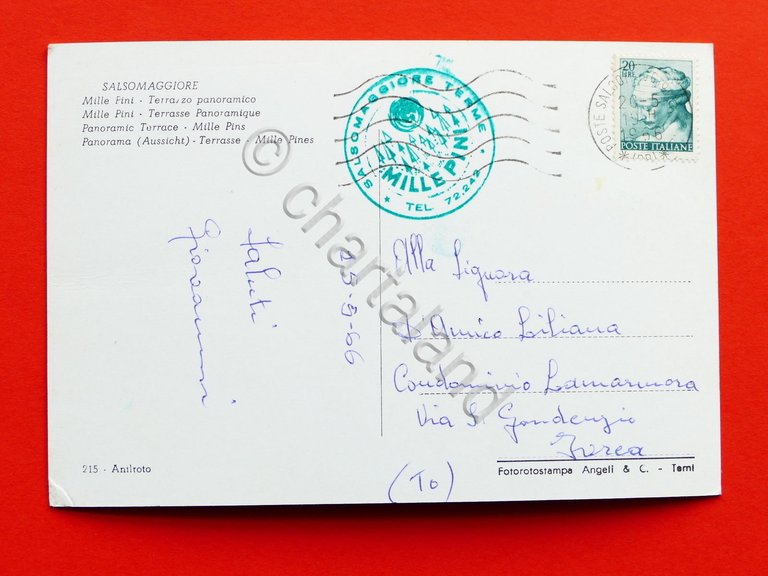 SALSOMAGGIORE
Mille Pini - Terrazzo panoramico
Mille Pini - Terrasse Panoramique
Panoramic Terrace - Mille Pins
Panorama (Aussicht) - Terrasse - Mille Pines
SALSOMAGGIORE TERME
MILLE PINI
* TEL. 72.242
20
LIRE
POSTE ITALIANE
POSTE SALS
25-9-66
Saluti
Giovanni
Alla Signora
D'Amico Liliana
Condominio Lamarmora
Via S. Gaudenzio
Ivrea
(To)
215 - Antiroto
Fotorotostampa Angeli & C. - Terni
© chartaland